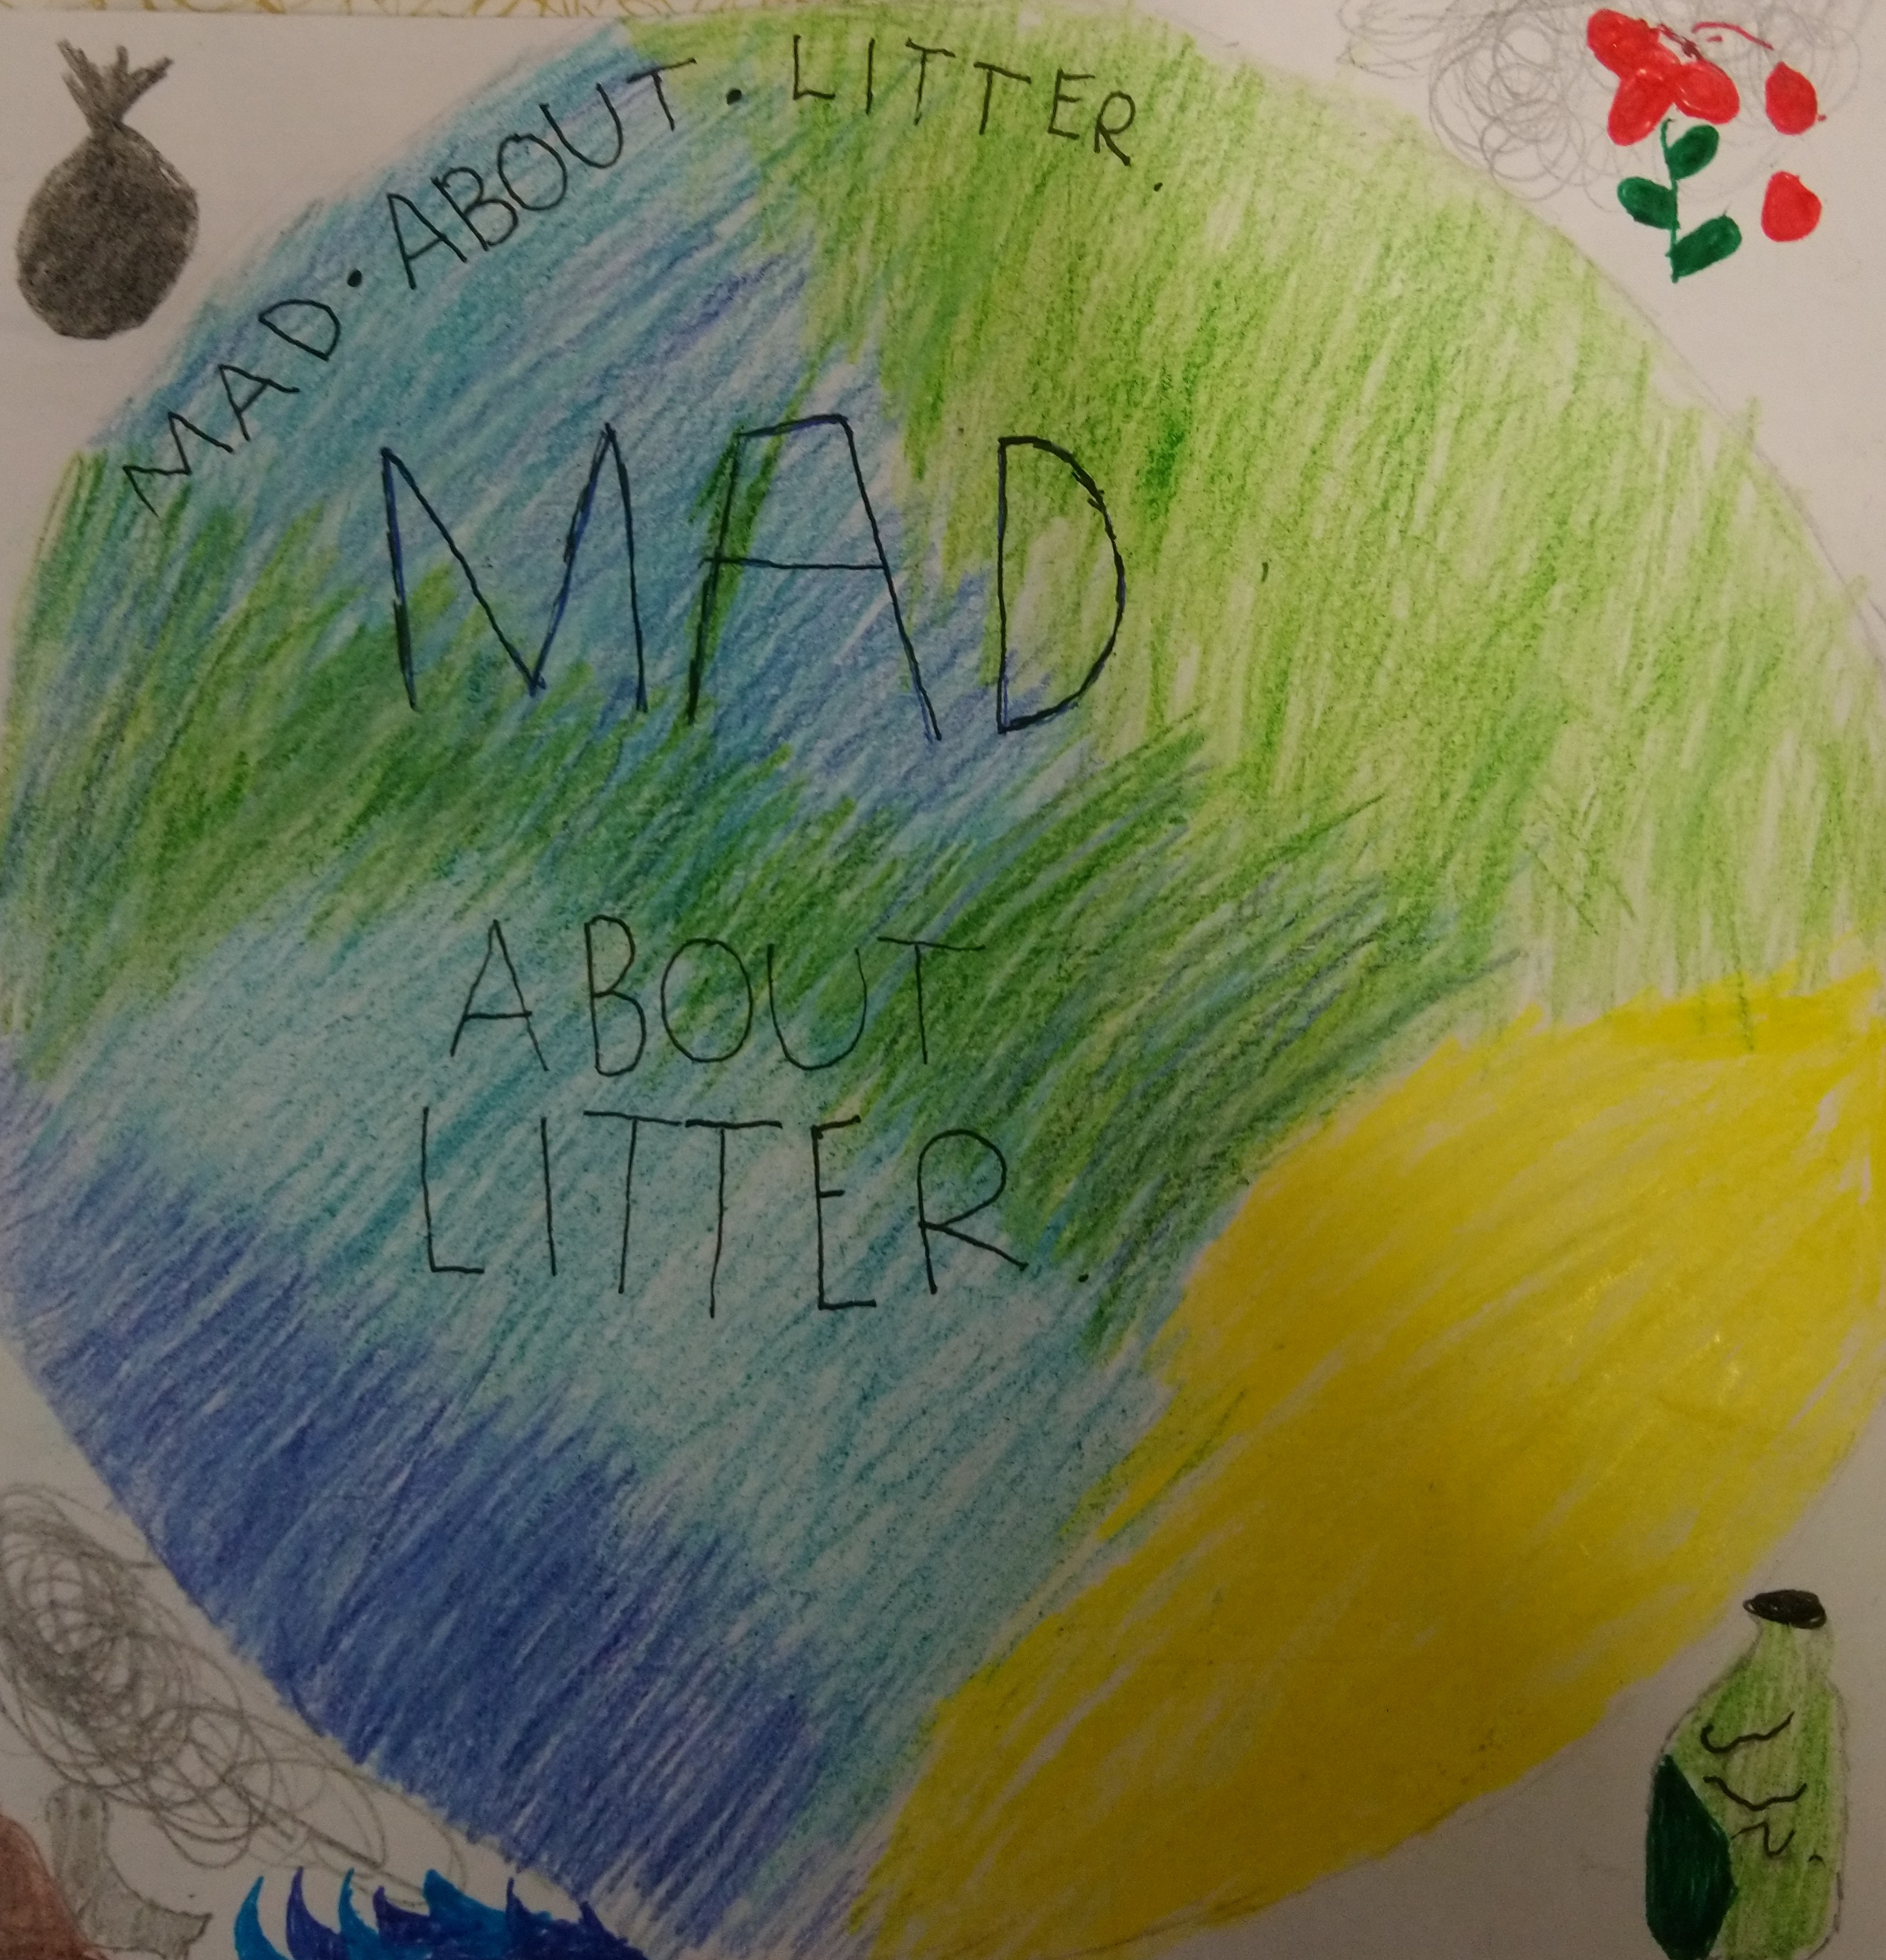 MAD · ABOUT · LITTER.
MAD
ABOUT
LITTER.